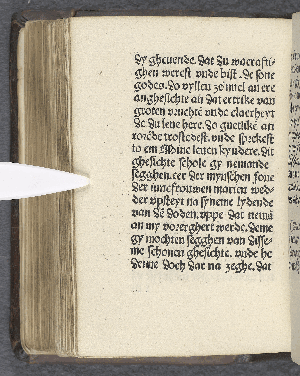 dy gheuende. dat du waerafti-
ghen werest vnde bist. de sone
godes. do vyllen ze snel an ere
anghesichte an dat ertrike van
groten vruchte vnde claerheyt
de du lene here. do guetlike an
rorede trostedest. vnde sprekest
to em Mine leuen kyndere. dit
ghesichte schole gy nemande
segghen. eer der mynschen sone
der iuncfrouwen marien wed-
der vpsteyt na syneme lydende
van dē doden. vppe dat nemā
an my vorerghert werde. deme
gy mochten segghen van disse-
me schonen ghesichte. vnde he
denne doch dar na zeghe. dat